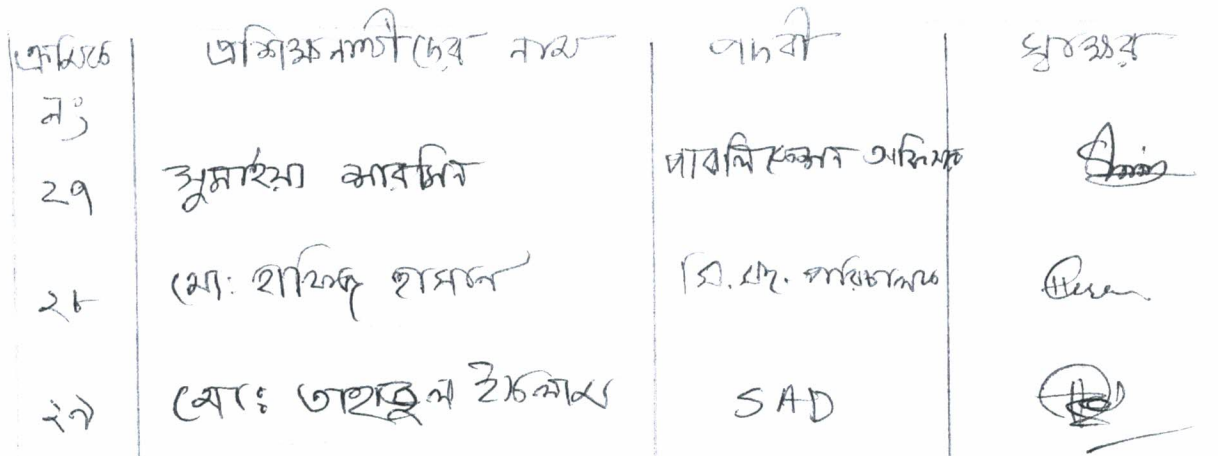 ক্রমিক নং প্রশিক্ষনার্থীদের নাম পদবী স্বাক্ষর
২৭ সুমাইয়া শারমিন পাবলিকেশন অফিসার
২৮ মো: হাফিজ হাসান পরিচালক
২৯ মো: তাহাবুল ইসলাম SAD